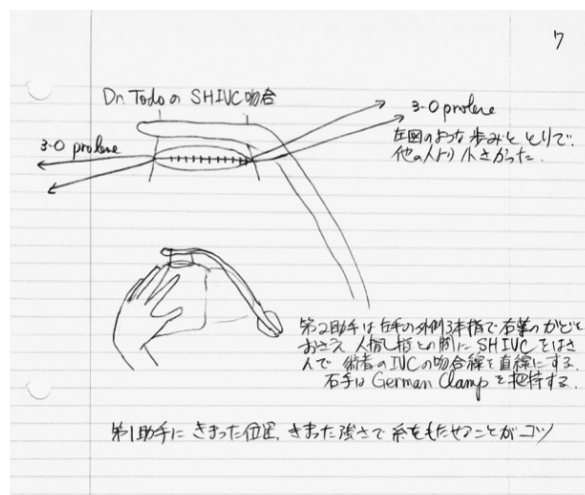 7
Dr. Todoの SHIVC吻合
3-0 prolene
3-0 prolene
左図のような歩みととりで、
他の人より小さかった.
第2助手は左手の外側3本指で右葉のかどを
おさえ 人指し指との間に SHIVCをはさ
んで 術者のIVCの吻合線を直線にする.
右手は German Clamp を把持する.
第1助手に きまった位置, きまった強さで 糸をもたせることがコツ